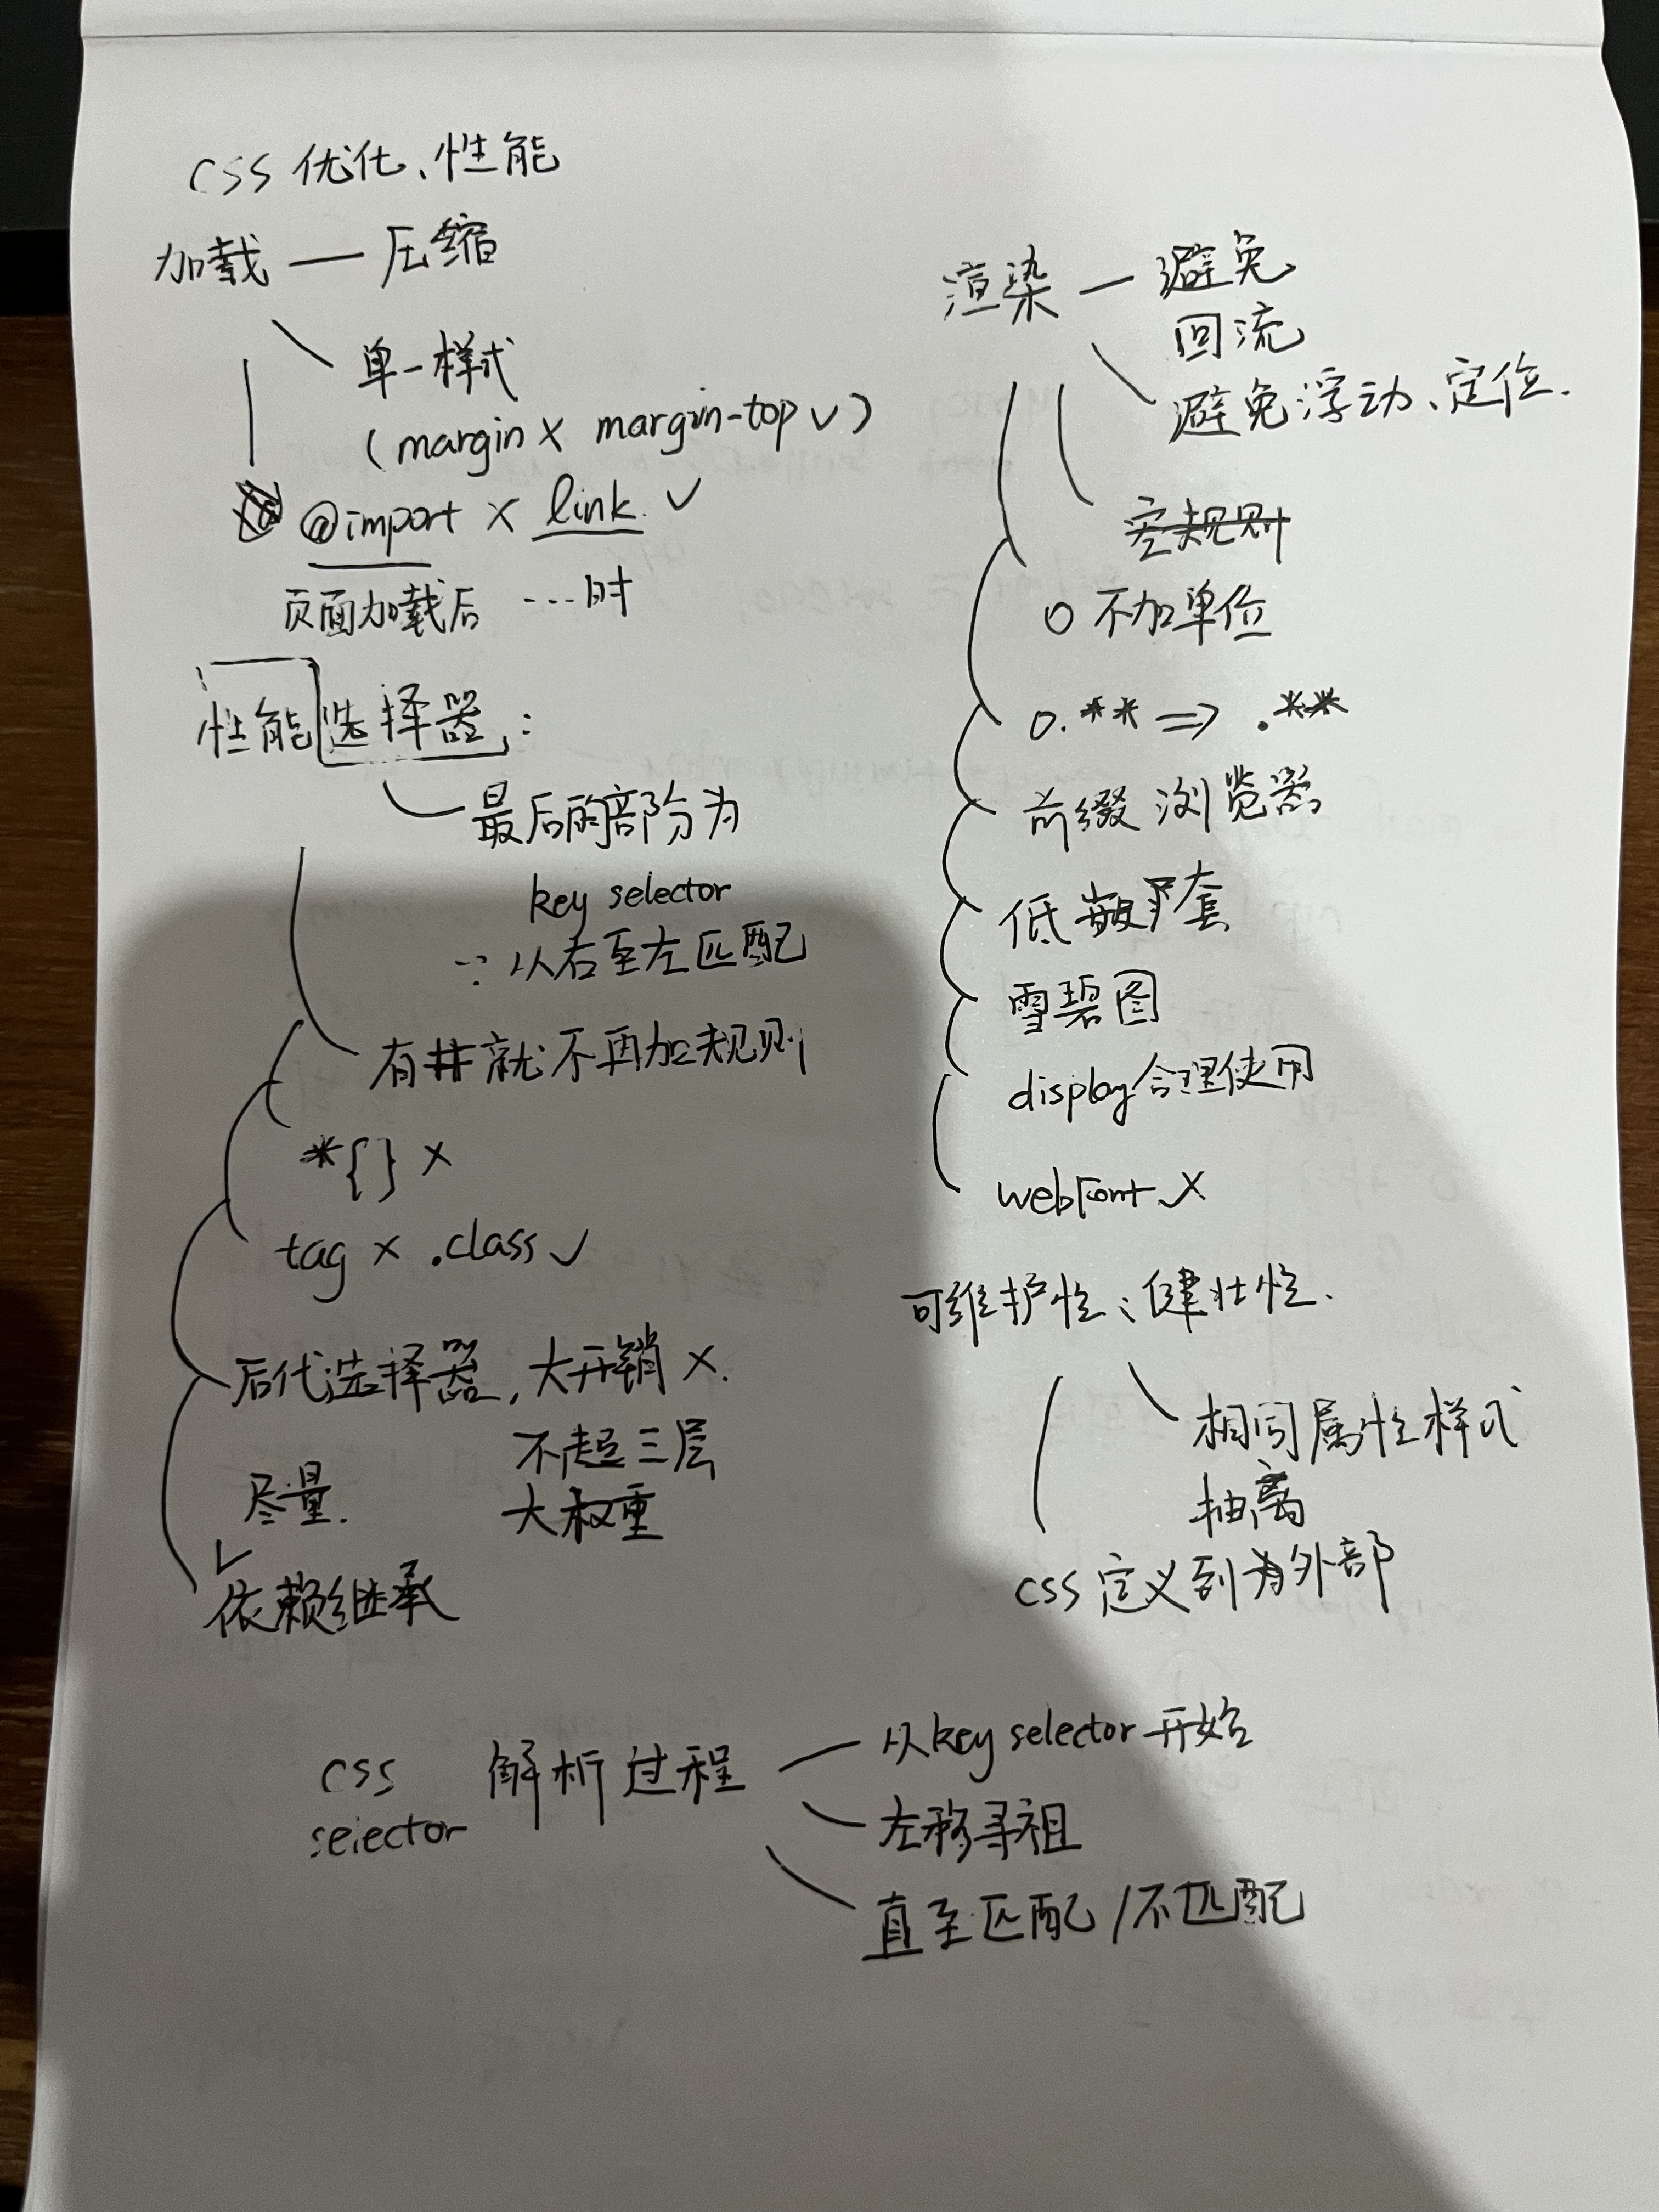 CSS 优化、性能
加载 — 压缩
单一样式
(margin × margin-top ✓)
@import × link. ✓
页面加载后 …时
性能选择器:
最后的部分为
key selector
∵ 从右至左匹配
有#就不再加规则
*{} ×
tag × .class ✓
后代选择器,大开销 ×.
不超三层
大权重
尽量.
✓
依赖继承
渲染 — 避免
回流
避免浮动、定位.
空规则
0 不加单位
0.** ⇒ .**
前缀浏览器
低嵌套
雪碧图
display合理使用
webFont ×
可维护性、健壮性.
相同属性样式
抽离
CSS 定义到外部
CSS 解析过程
selector
从key selector开始
左移寻祖
直至匹配/不匹配